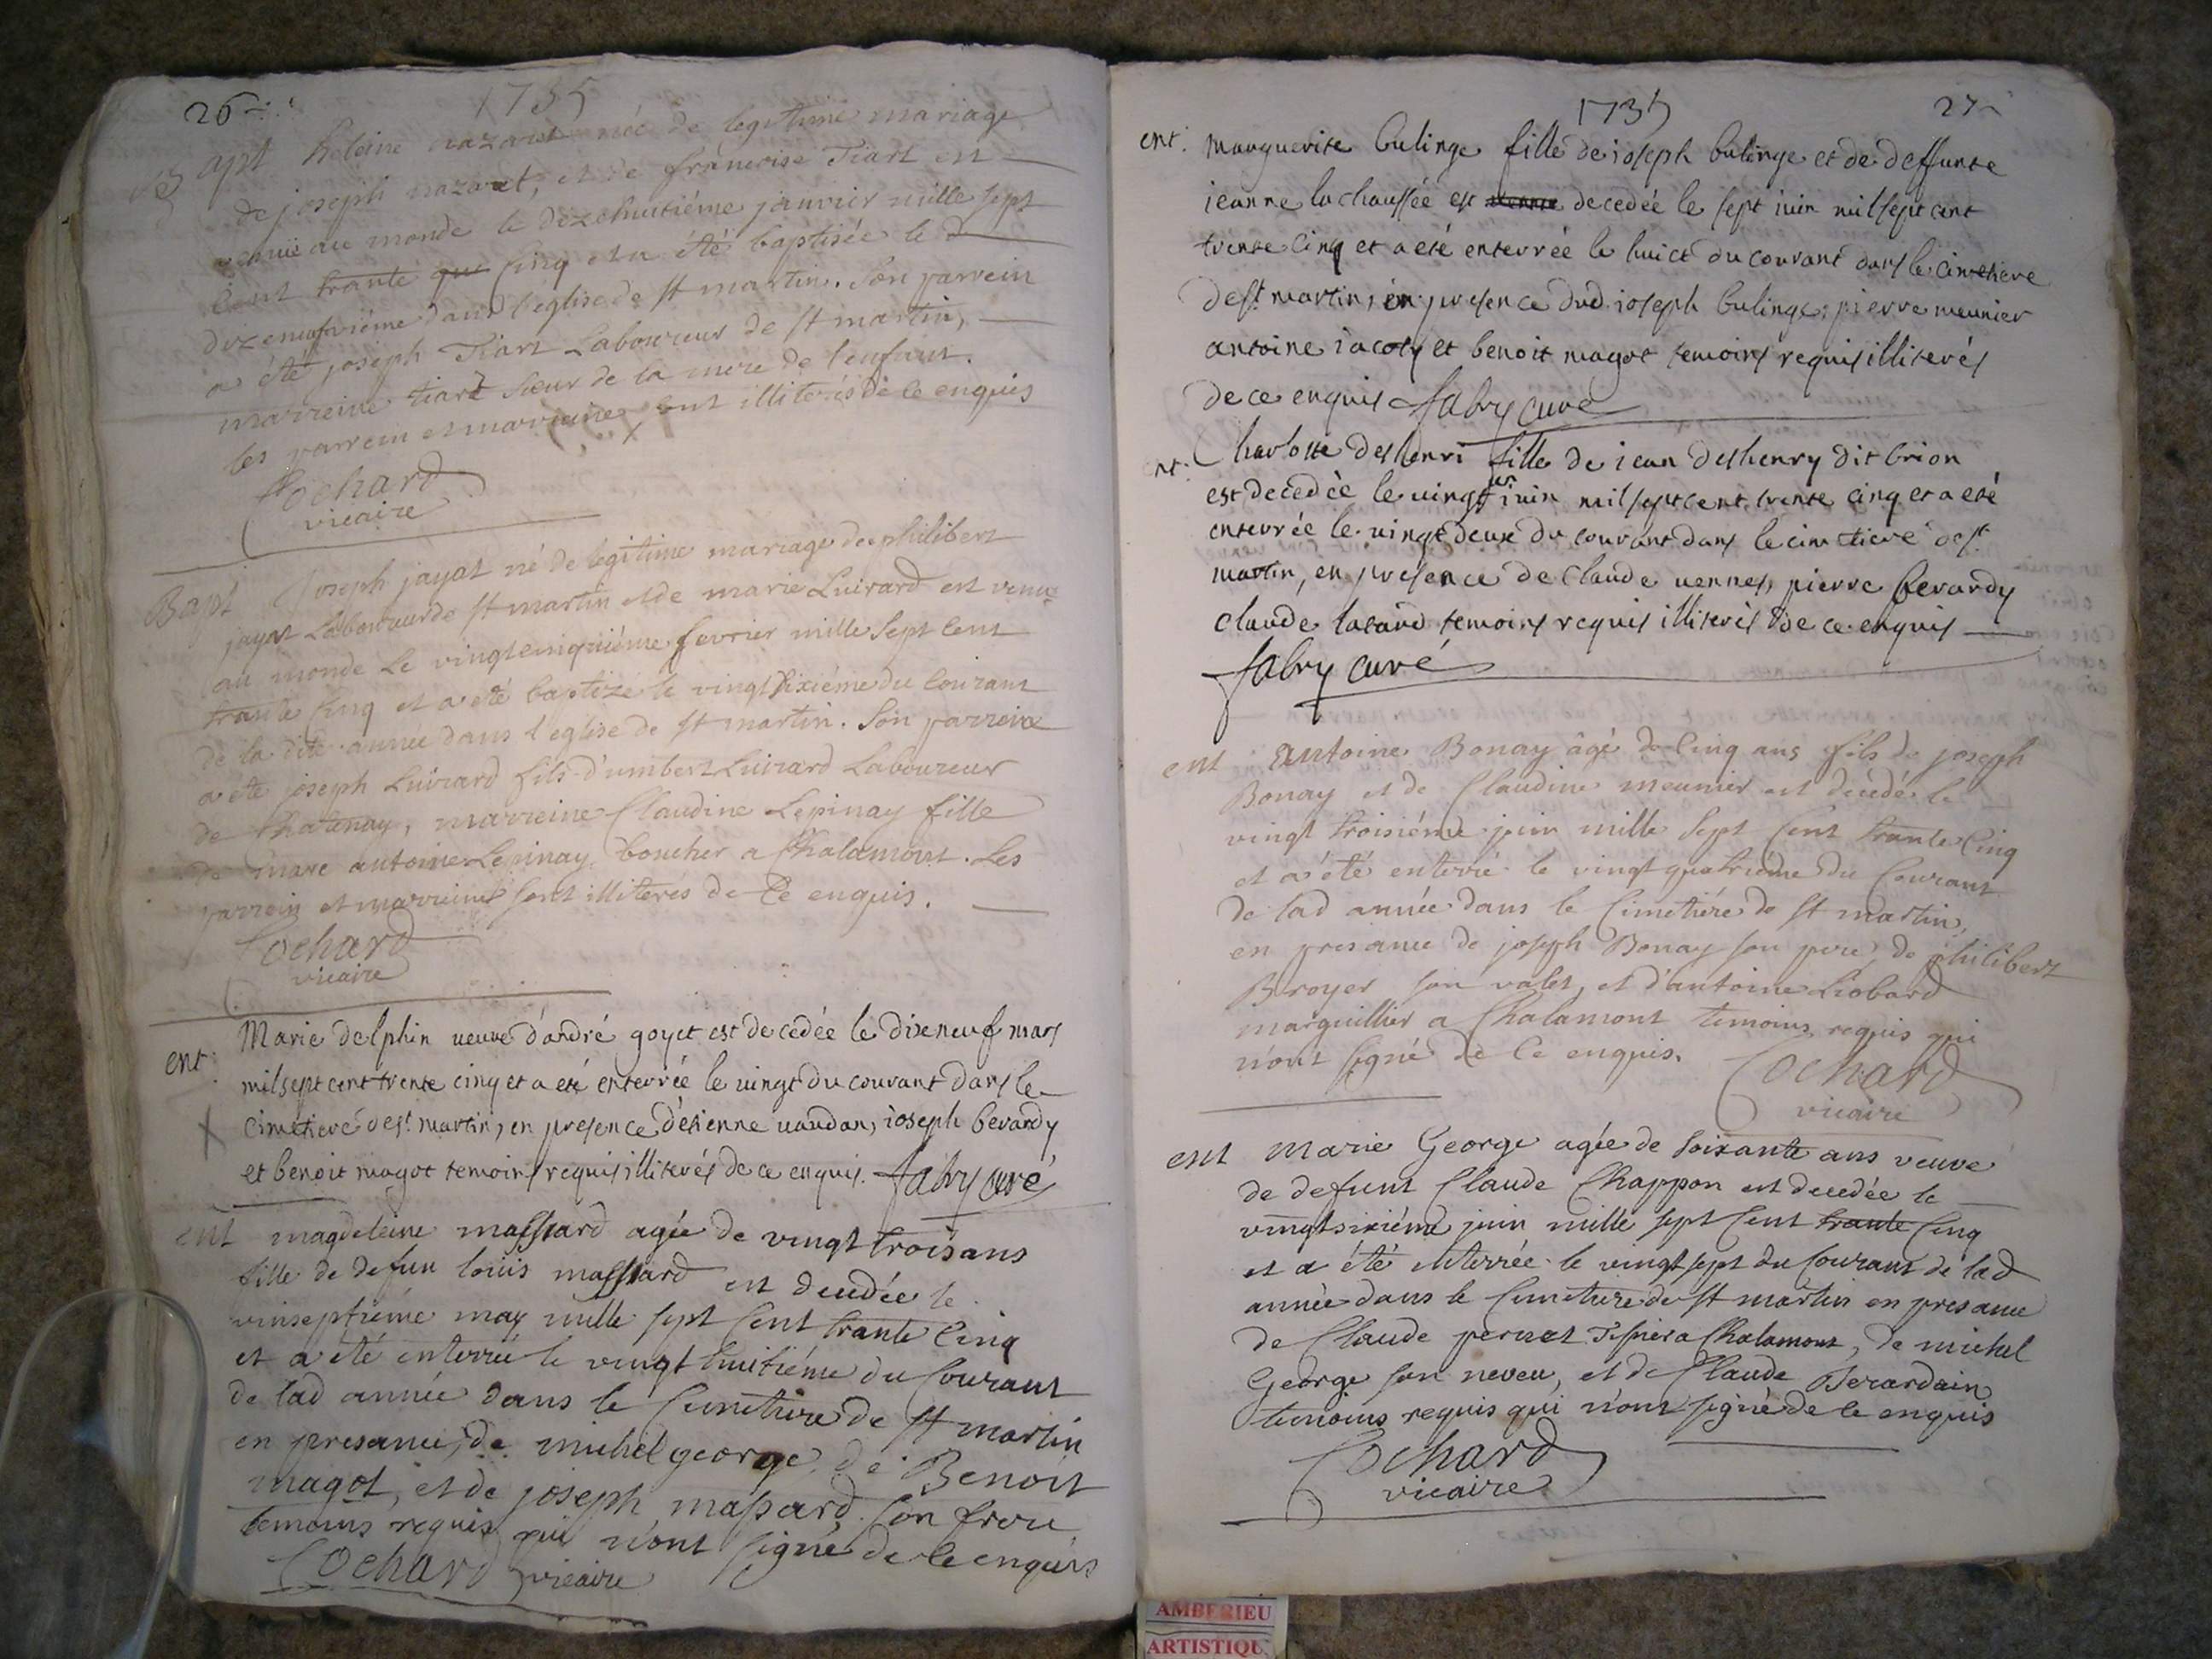 26
1735
Bapt heleine nazaret née de legitime mariage
de joseph nazaret, et de francoise Tiart est
venuë au monde le dizehuitiéme janvier mille sept
Cent trante Cinq et a été baptisée le
dizeneufviéme dans l'église de st martin. son parrein
a été joseph Tiart Laboureur de st martin,
marreine tiart sœur de la mere de l'enfant.
les parrein et marreine sont illiterés de ce enquis
Cochard
vicaire
Bapt joseph jayat né de legitime mariage de philibert
jayat Laboureur de st martin et de marie Luirard est venu
au monde Le vingtcinquiéme fevrier mille sept Cent
trante Cinq et a été baptizé le vingtsixiéme du Courant
de la dite année dans l'eglise de st martin. Son parrein
a été joseph Luirard fils d'umbert Luirard Laboureur
de Chatenay, marreine Claudine Lepinay fille
de marc antoine Lepinay boucher a Chalamont. Les
parrein et marreine sont illiterés de Ce enquis.
Cochard
vicaire
ent: Marie delphin veuve d'andré goyet est decedée le dixneuf mars
milsept cent trente cinq et a eté enterrée le vingt du courant dans le
cimetiere de st. martin, en presence d'etienne vaudan, ioseph berardy
et benoit magot temoins requis illiterés de ce enquis. fabry curé
ent magdeleine massard agée de vingt trois ans
fille de defun loüis massard est decedée le
vinseptiéme may mille sept Cent trante Cinq
et a été enterrée le vingt huitiéme du Courant
de lad année dans le Cimetiere de st martin
en presance, de michel george, de Benoit
magot, et de joseph massard son frere
temoins requis qui n'ont signé de Ce enquis
Cochard vicaire
1735
27
ent: marguerite bulinge fille de ioseph bulinge et de deffunte
ieanne la chaussée est decedée le sept iuin milsept cent
trente cinq et a eté enterrée le huict du courant dans le cimetiere
de st. martin, en presence dud. ioseph bulinge, pierre meunier
antoine iacoty et benoit magot temoins requis illiterés
de ce enquis fabry curé
ent: Charlotte deshenri fille de iean deshenry dit brion
est decedée le vingt un iuin mil sept cent trente cinq et a eté
enterrée le vingt deux du courant dans le cimetiere de st.
martin, en presence de claude vennes, pierre berardy
claude temoins requis illiterés de ce enquis
fabry curé
ent Antoine Bonay âgé de Cinq ans fils de joseph
Bonay et de Claudine meunier est décédé le
vingt troisiéme juin mille sept Cent trante Cinq
et a été enterré le vingt quatriéme du Courant
de lad année dans le Cimetiére de st martin,
en presance de joseph Bonay son pere, de philibert
Broyer son valet, et d'antoine Liobard
marguillier a Chalamont temoins requis qui
n'ont signé de Ce enquis. Cochard
vicaire
ent Marie George agée de soixante ans veuve
de defunt Claude Chappon est decedée le
vingtsixiéme juin mille sept Cent trante Cinq
et a été enterrée le vingt sept du Courant de lad
année dans le Cimetiere de st martin en presance
de Claude pernet Tissier a Chalamont, de michel
George son neveu, et de Claude Berardain
temoins requis qui n'ont signé de Ce enquis
Cochard
vicaire
AMBERIEU
ARTISTIQU